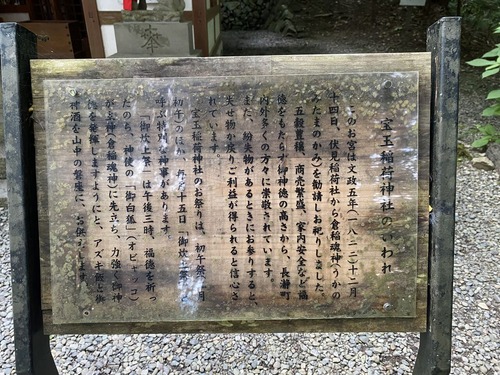 宝玉稲荷神社のいわれ
このお宮は文政五年(一八二二)十二月
十四日、伏見稲荷社から倉稲魂神(うかの
みたまのかみ)を勧請しお祀りしました。
五穀豊穣、商売繁盛、家内安全など福
徳をもたらす御神徳の高さから、長瀞町
内外多くの方々に崇敬されています。
また、紛失物があるときにお参りすると、
失せ物が戻りご利益が得られると信心さ
れています。
宝玉稲荷神社のお祭りは、初午祭(二月
初午)のほか、
呼ぶ特殊な神事があります。
「御炊上祭」は午後三時、福徳を祈っ
たのち、神使の「御白狐」(オビャッコ)
が主神(倉稲魂神)に先立ち、力強く御神
徳を発揮しますようにと、アズキ飯と御
神酒を山中の磐座に、お供えします。
奉